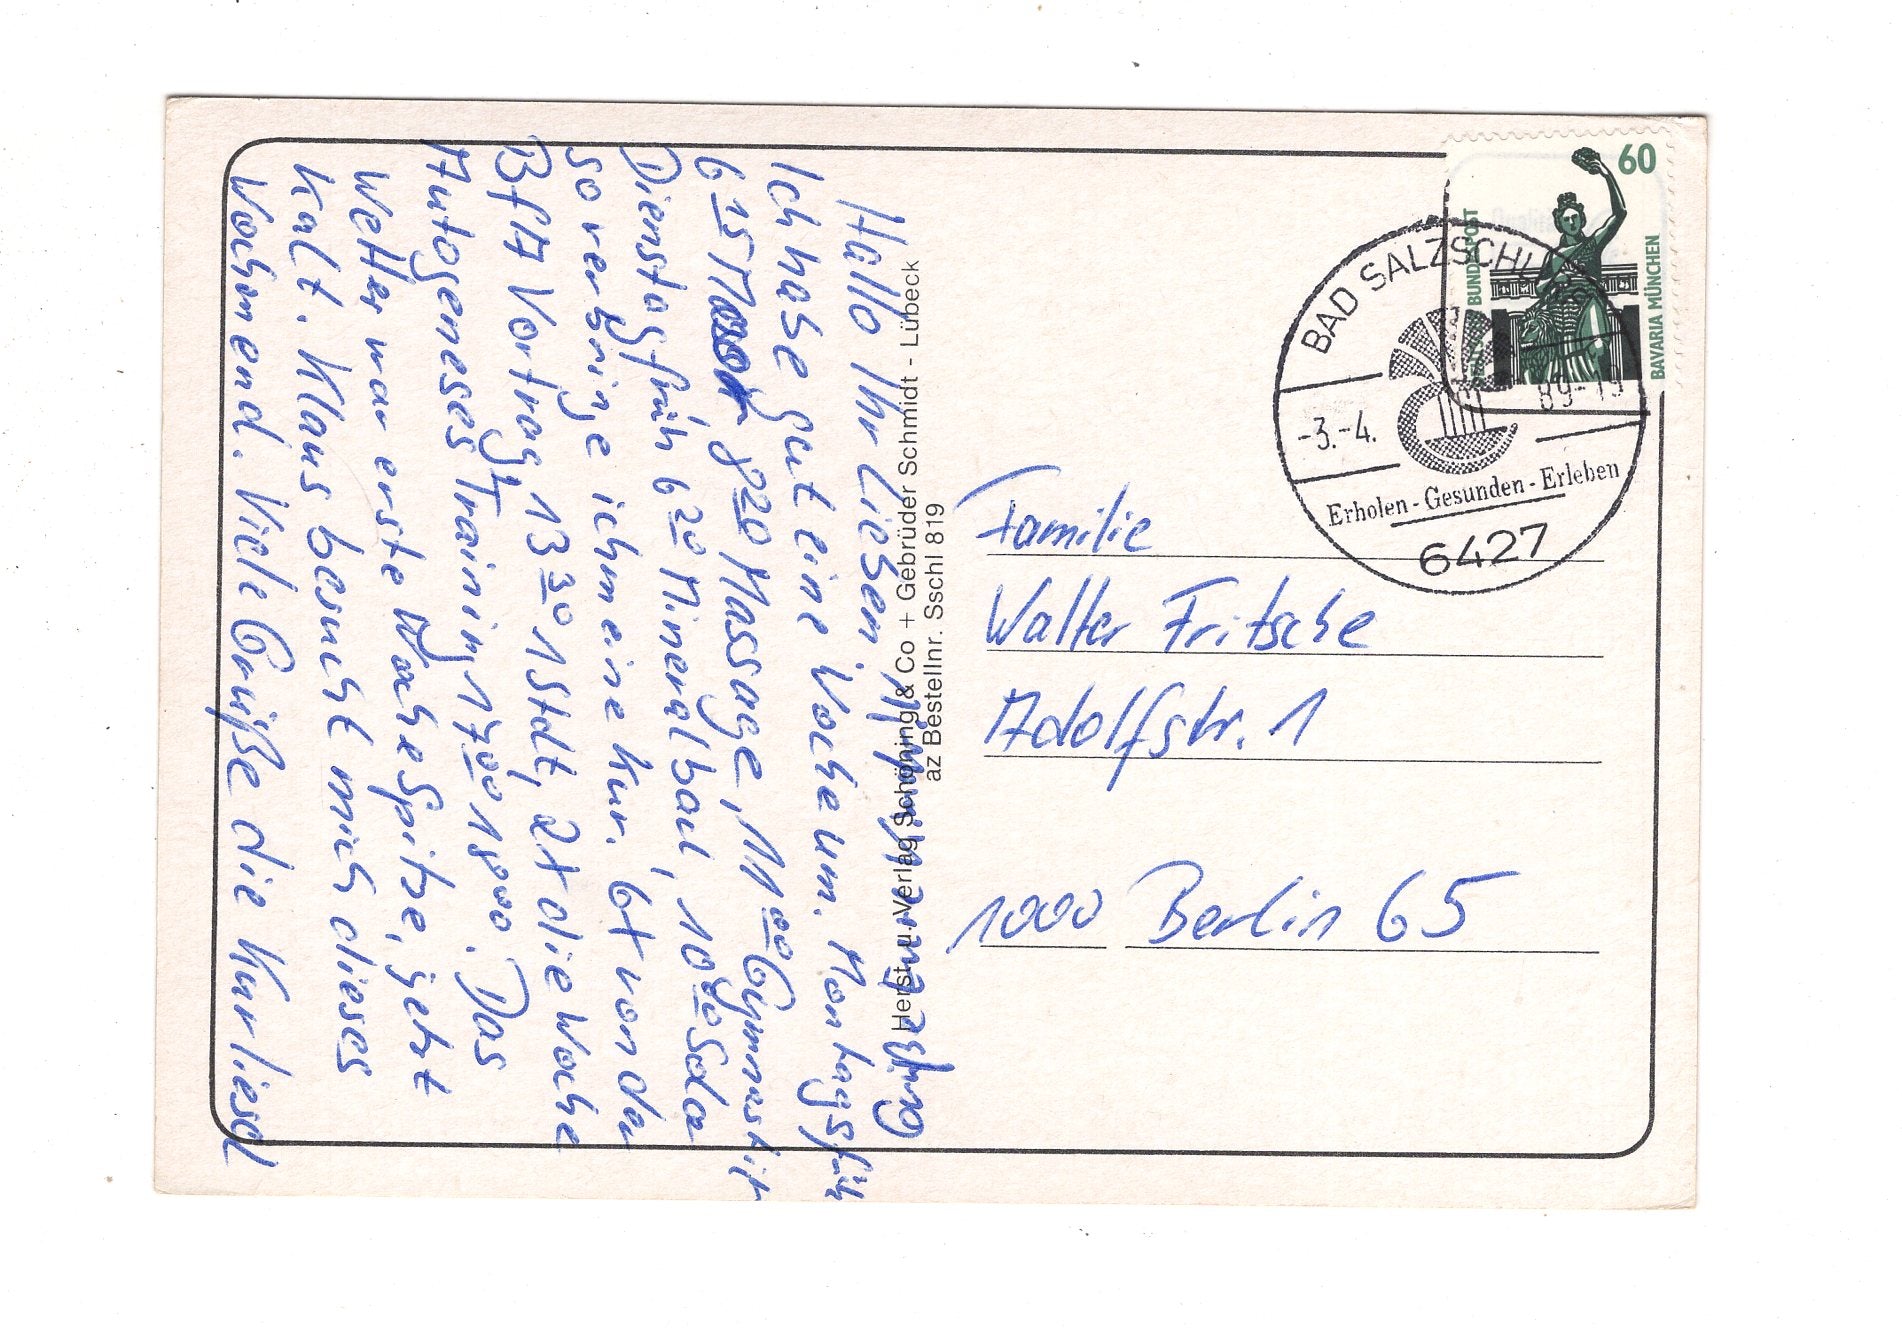 Hallo Ihr Lieben
Ich habe gut eine Woche um. Montagsfrüh
6 15 Moor 8 20 Massage, 11 00 Gymnastik
Dienstagfrüh 6 20 Mineralbad, 10 40 Sole
so verbringe ich meine Kur. 6x von der
BfA Vortrag, 13 30 1 Std, 2x die Woche
Autogenes Training 17 00 18 00. Das
Wetter war erste Woche Spitze, jetzt
kalt. Klaus besucht mich dieses
Wochenend. Viele Grüße die Kurliesel
Herst. u. Verlag Schöning & Co + Gebrüder Schmidt - Lübeck
az Bestellnr. Sschl 819
60
DEUTSCHE BUNDESPOST
BAVARIA MÜNCHEN
BAD SALZSCHLIRF
-3.-4. 89-19
Erholen - Gesunden - Erleben
6427
Familie
Walter Fritsche
Adolfstr. 1
1000 Berlin 65